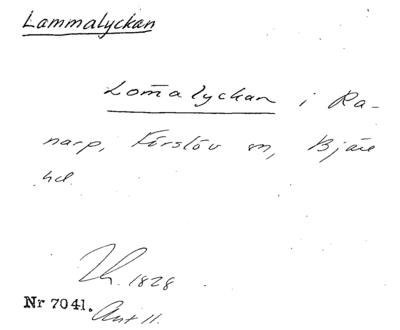 Lammalyckan
Lom̄alyckan i Ra-
narp, Förslöv sn, Bjäre
hd.
Lh. 1828
Nr 7041. Akt 11.